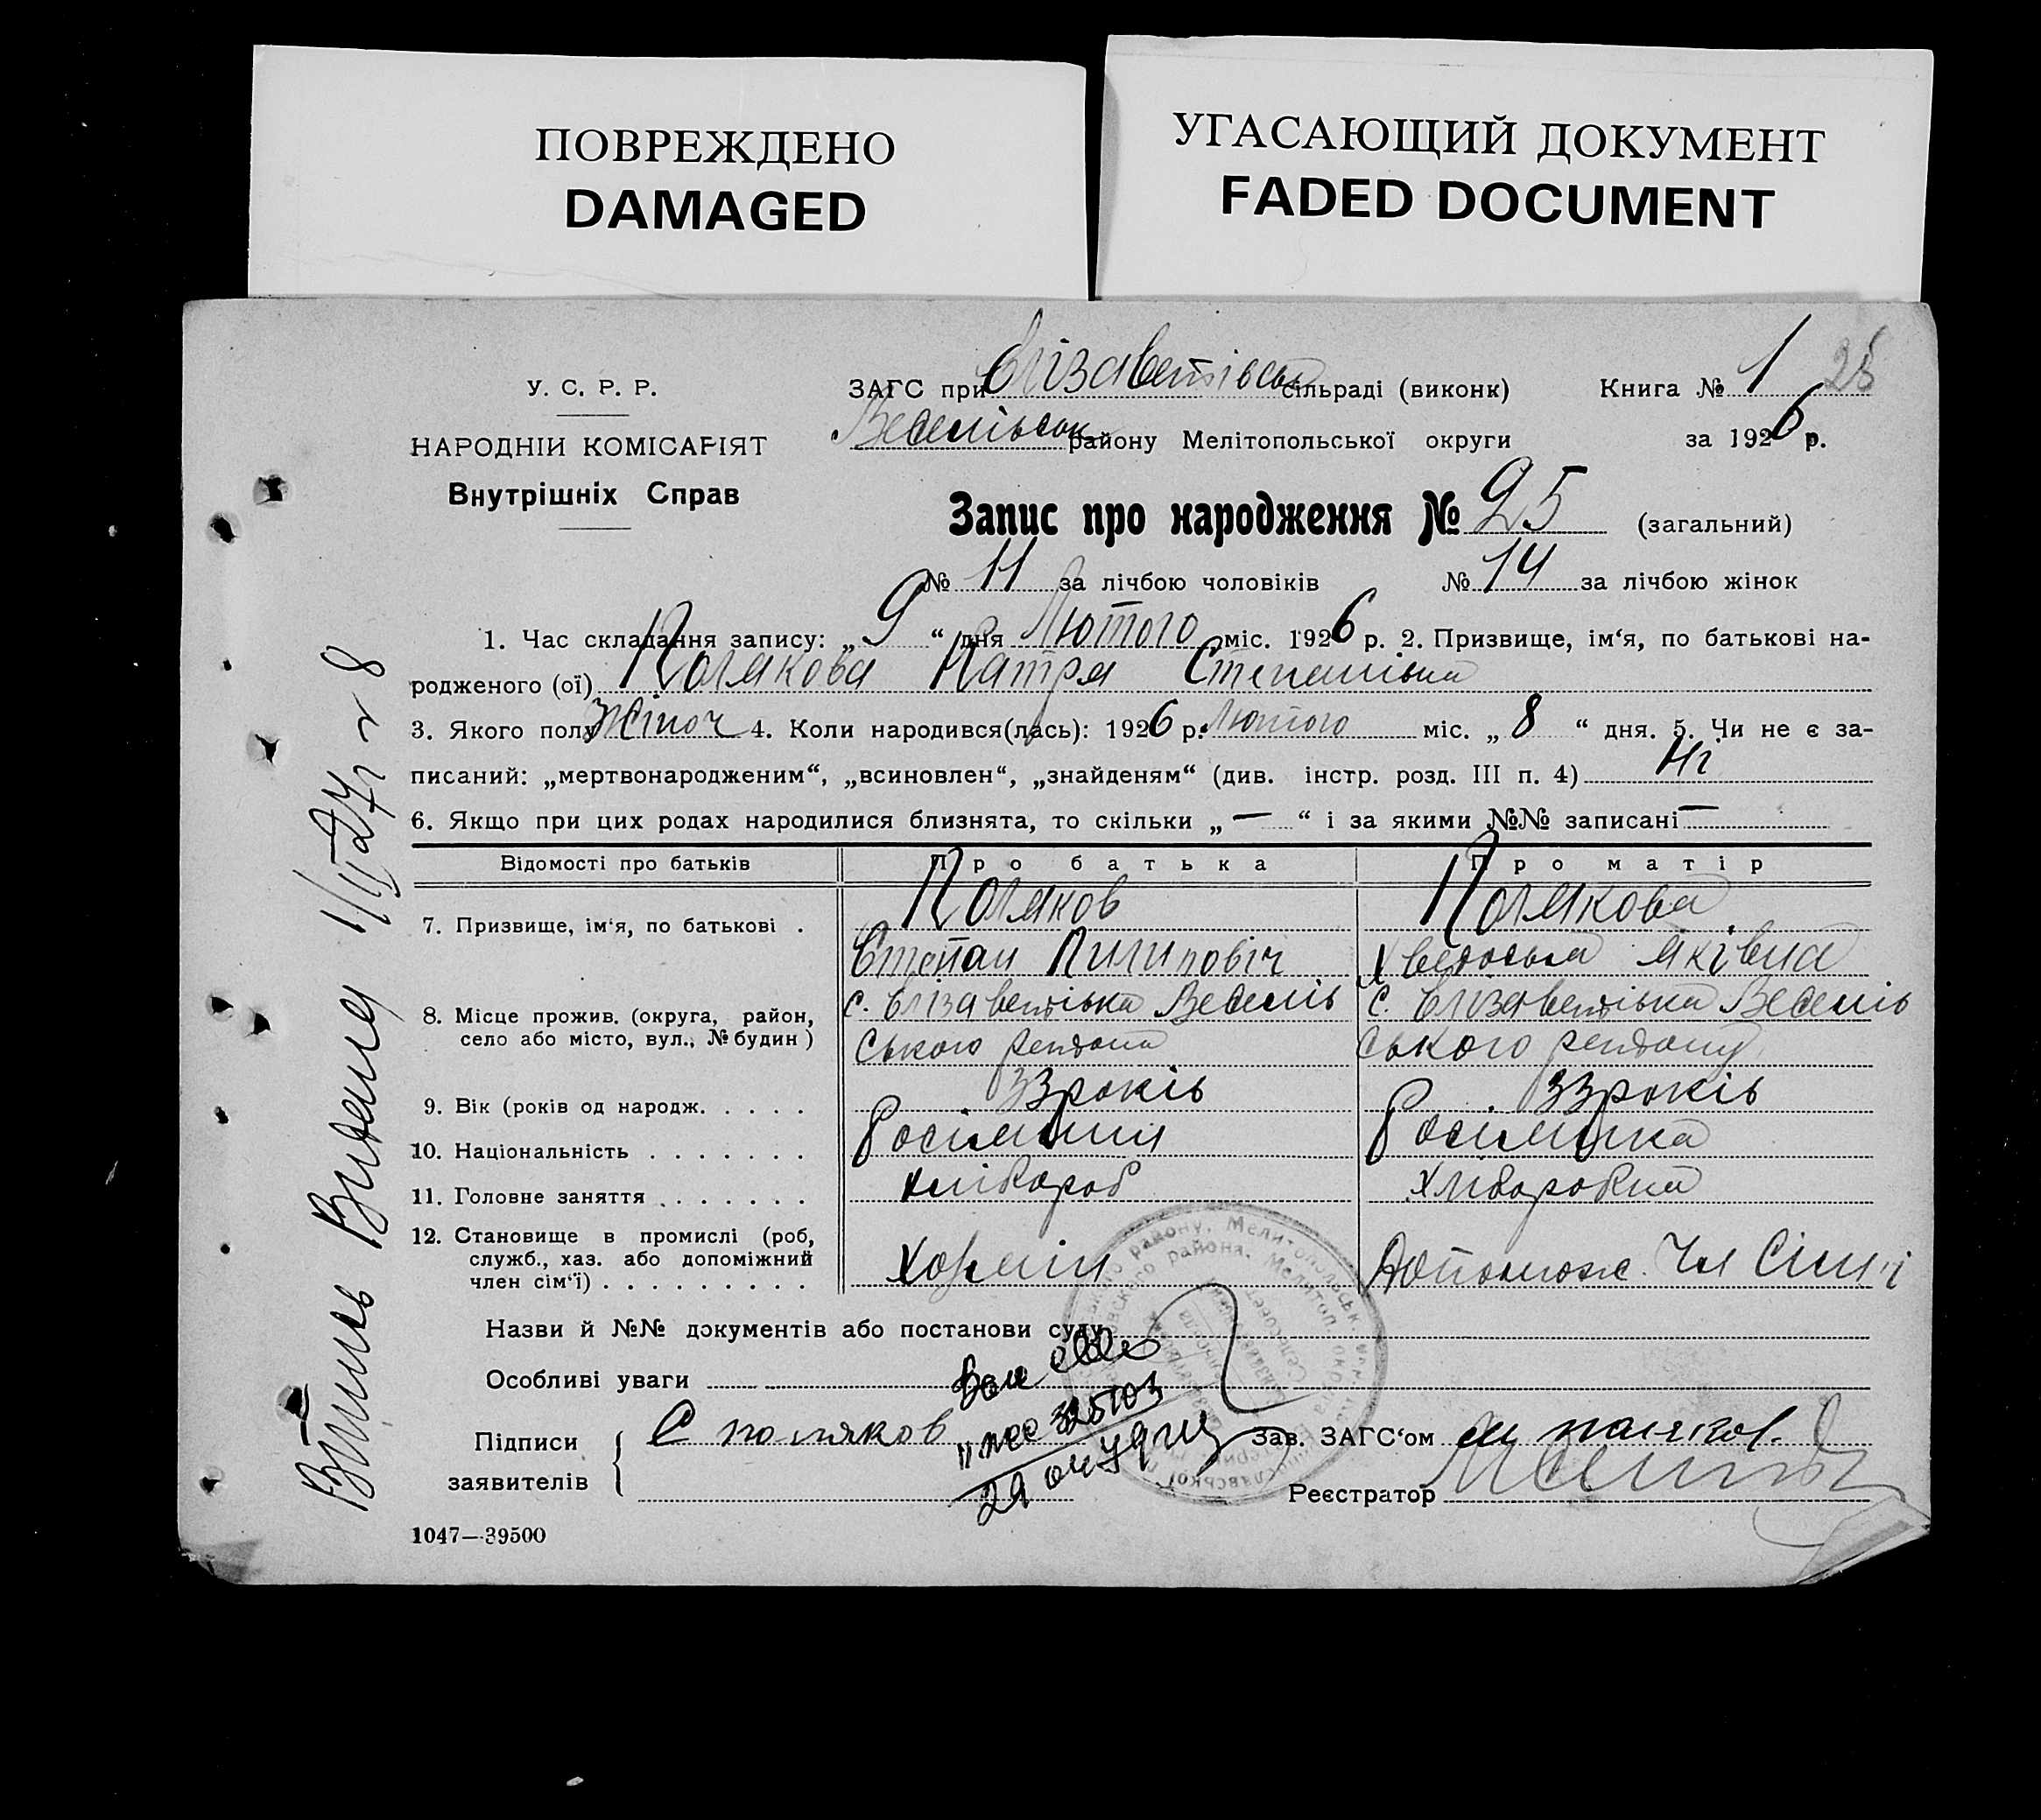 ПОВРЕЖДЕНО
DAMAGED
УГАСАЮЩИЙ ДОКУМЕНТ
FADED DOCUMENT
У. С. Р. Р.
НАРОДНІЙ КОМІСАРІЯТ
Внутрішніх Справ
ЗАГС при Єлізаветівськ сільраді (виконк) Книга № 1 28
Веселівськ району Мелітопольської округи за 1926 р.
Запис про народження № 25 (загальний)
№ 11 за лічбою чоловіків № 14 за лічбою жінок
1. Час складання запису: „9“ дня Лютого міс. 1926 р. 2. Призвище, ім‘я, по батькові на-
родженого (ої) Полякова Патря Степанівна
3. Якого полу жіноч 4. Коли народився(лась): 1926 р. Лютого міс. „8“ дня. 5. Чи не є за-
писаний: „мертвонародженим“, „всиновлен“, „знайденям“ (див. інстр. розд. III п. 4) Ні
6. Якщо при цих родах народилися близнята, то скільки „—“ і за якими №№ записані —
Відомості про батьків Про батька Про матір
7. Призвище, ім‘я, по батькові . Поляков Полякова
Степан Пилиповіч Хведоська Яківна
8. Місце прожив. (округа, район, с. Єлізаветівка Веселів с. Єлізаветівка Веселів
село або місто, вул., № будин) ського ського
9. Вік (років од народж. . . . . 33 років 33 років
10. Національність . . . . . . . Росіянин Росіянка
11. Головне заняття . . . . . . . хлібороб хліборобка
12. Становище в промислі (роб,
служб., хаз. або допоміжний
член сім‘ї) . . . . . . . . . Хозяин Допомож. Чл Сімї
Назви й №№ документів або постанови суду
Особливі уваги
Підписи С поляков Зав. ЗАГС‘ом
заявителів
Реєстратор
1047—39500